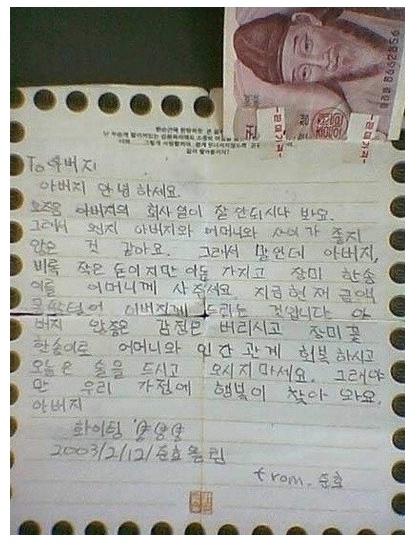 To 아버지
아버지 안녕하세요.
요즈음 아버지의 회사 일이 잘 안되시나 봐요.
그래서 왠지 아버지와 어머니와 사이가 좋지
않은 것 같아요. 그래서 말인데 아버지,
비록 작은 돈이지만 이돈 가지고 장미 한송
이를 어머니께 사주세요. 지금현재 금액
아버지께 드리는 것입니다 아
버지 않좋은 감정은 버리시고 장미꽃
한송이로 어머니와 인간관계 회복하시고
오늘은 술을 드시고 오시지마세요. 그래야
만 우리 가정에 행복이 찾아 와요.
아버지
화이팅
2003/2/12/준호올림
from. 준호
8662856